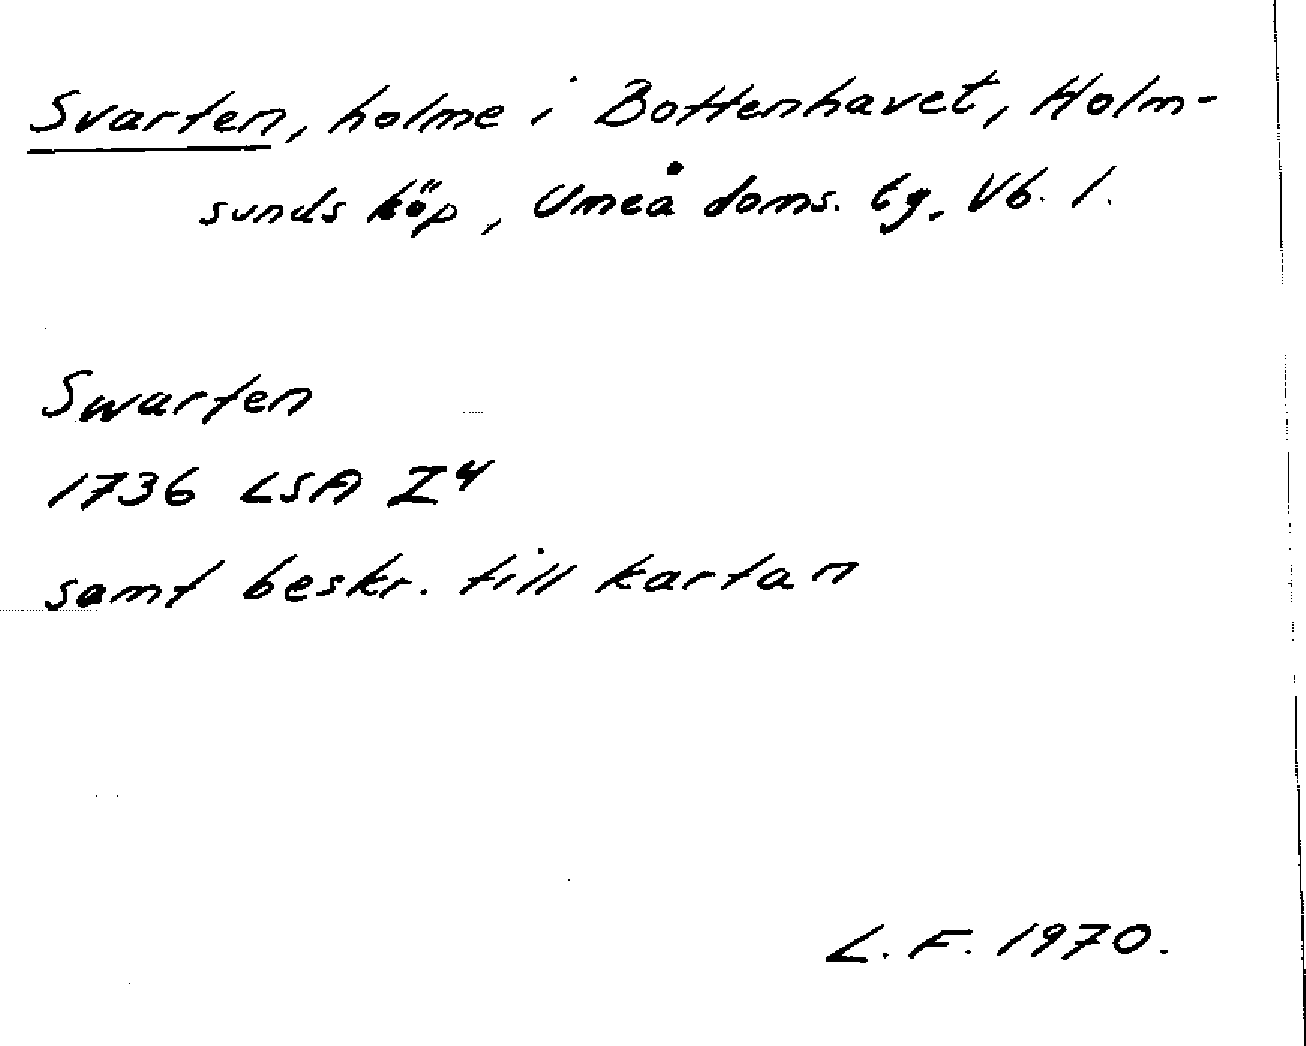 Svarten, holme i Bottenhavet, Holm-
sunds köp, Umeå doms. tg. Vb. l.
Swarten
1736 LSA Z4
samt beskr. till kartan
L. F. 1970.